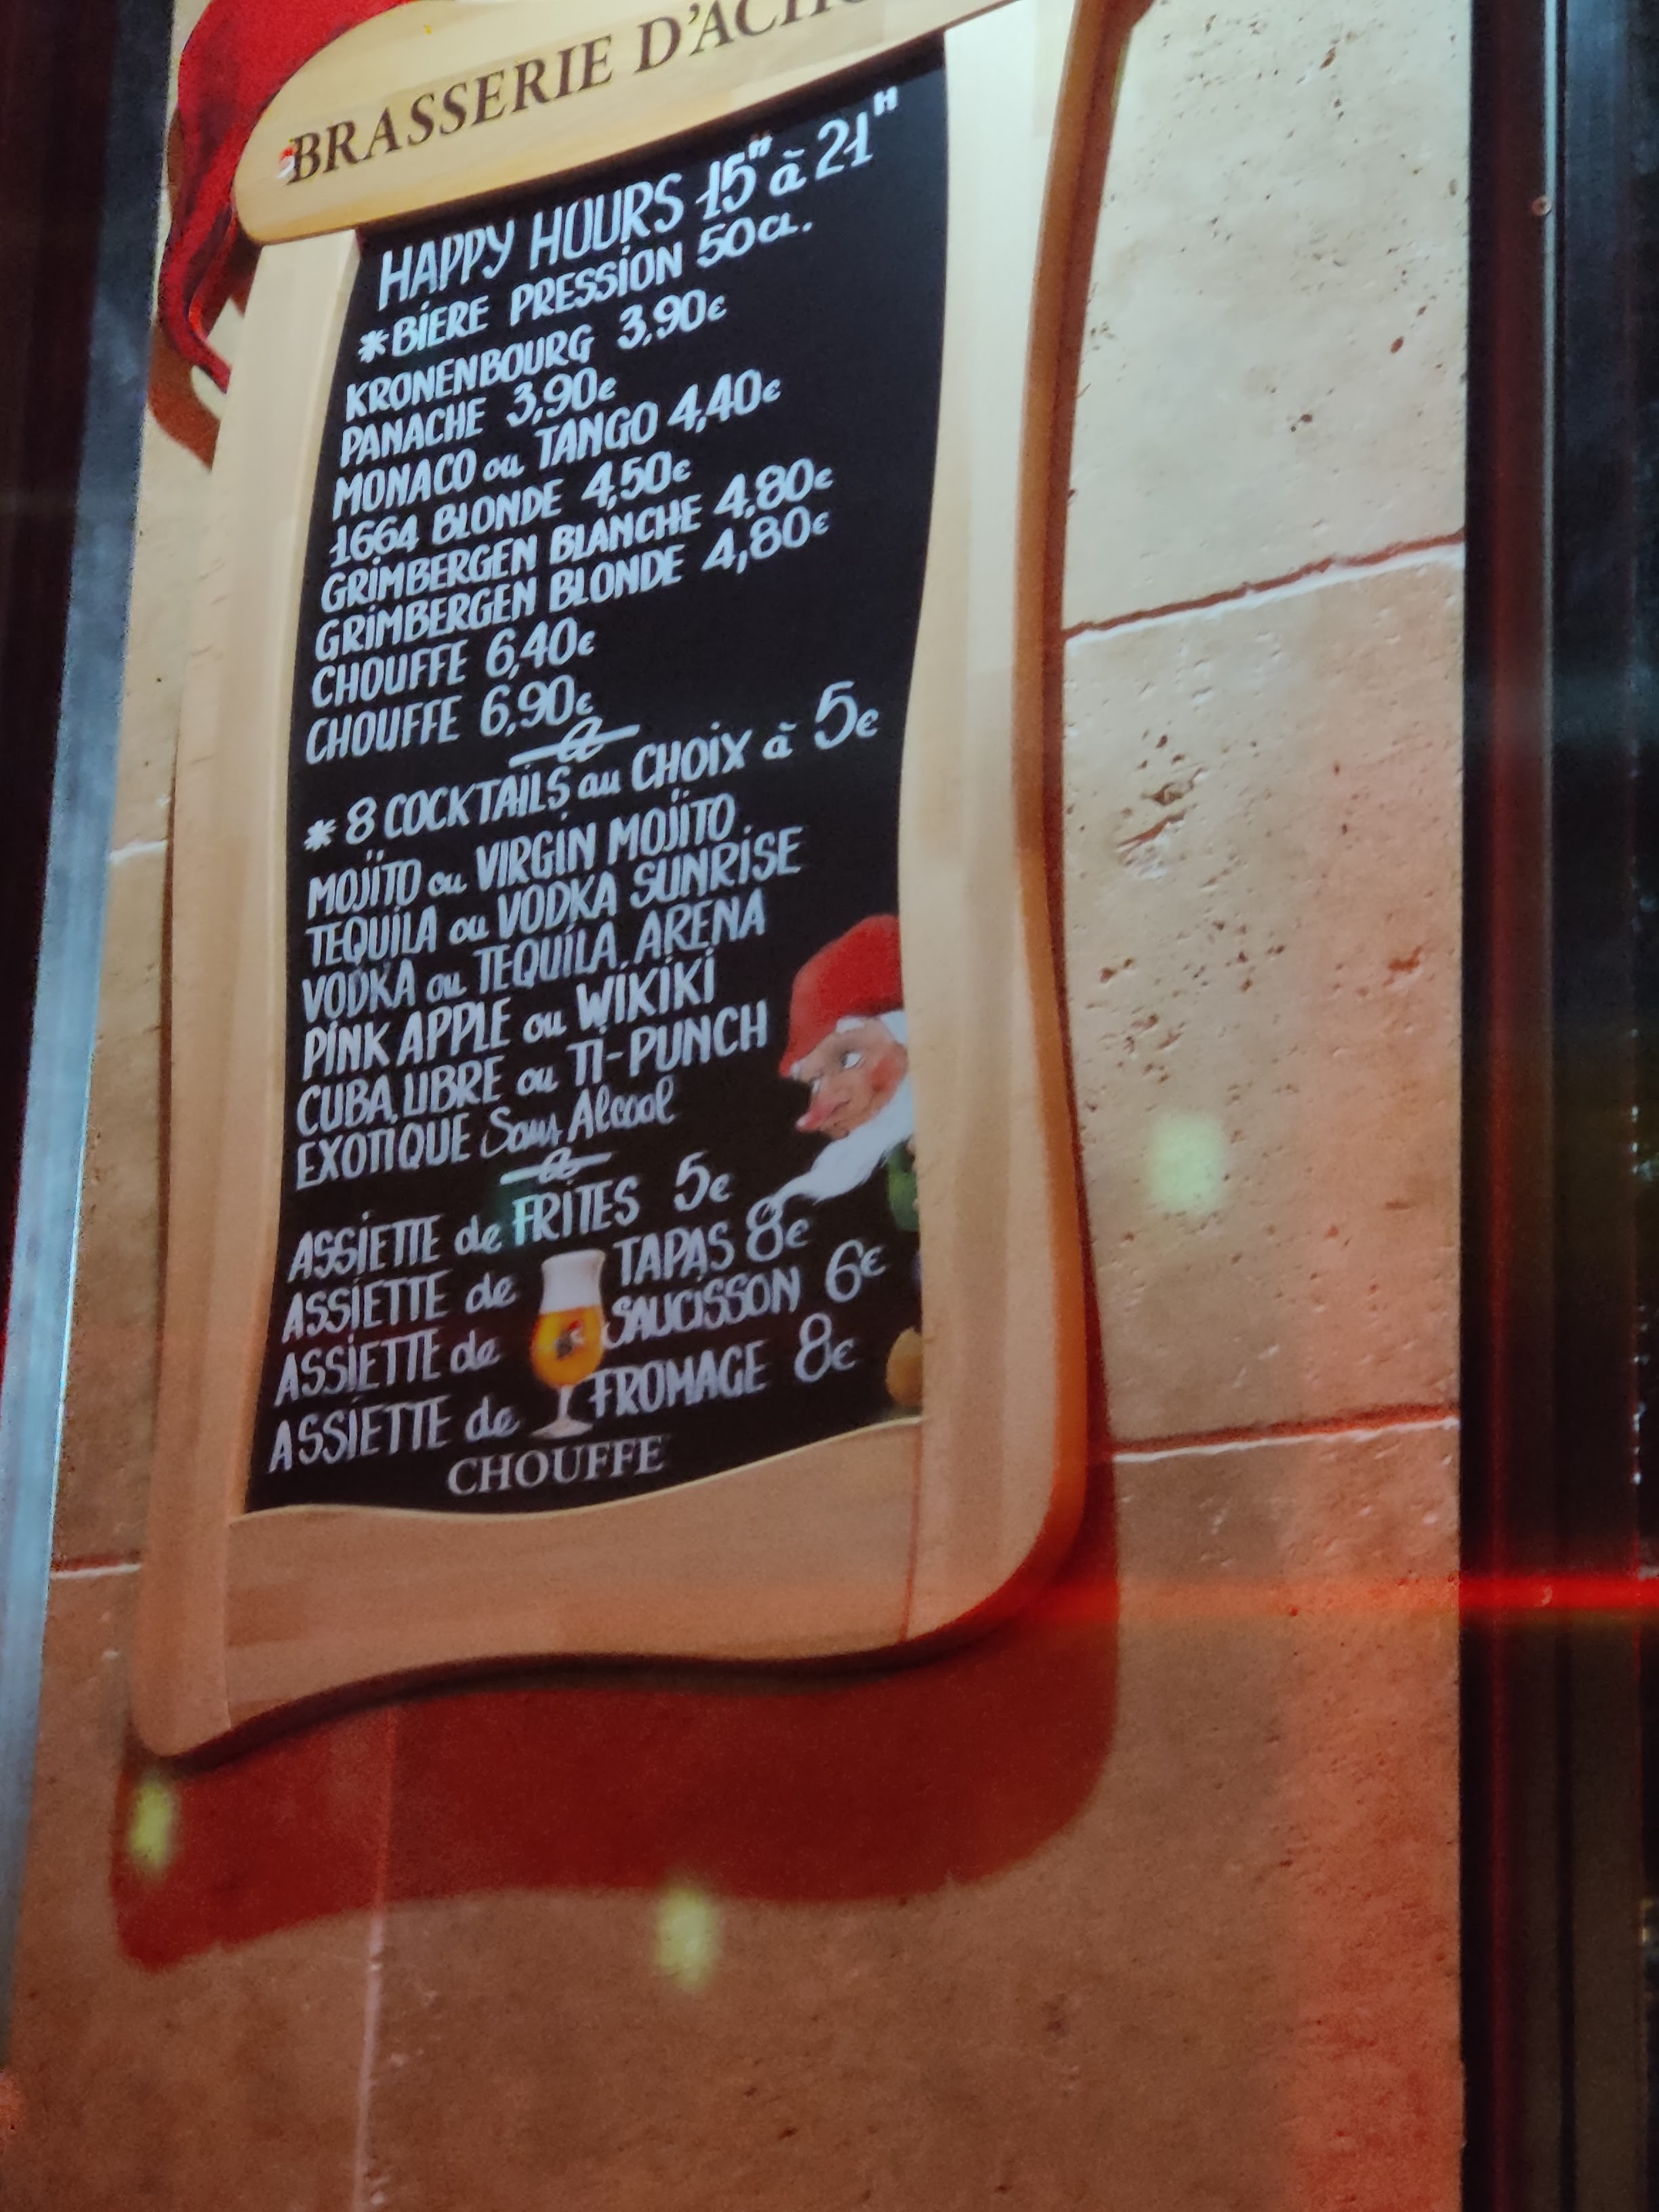 BRASSERIE D'ACHO
HAPPY HOURS 15H à 21H
*BIERE PRESSION 50CL.
KRONENBOURG 3,90€
PANACHE 3,90€
MONACO ou TANGO 4,40€
1664 BLONDE 4,50€
GRIMBERGEN BLANCHE 4,80€
GRIMBERGEN BLONDE 4,80€
CHOUFFE 6,40€
CHOUFFE 6,90€
* 8 COCKTAILS au CHOIX à 5€
MOJITO ou VIRGIN MOJITO
TEQUILA ou VODKA SUNRISE
VODKA ou TEQUILA ARENA
PINK APPLE ou WIKIKI
CUBA LIBRE ou TI-PUNCH
EXOTIQUE Sans Alcool
ASSIETTE de FRITES 5€
ASSIETTE de TAPAS 8€
ASSIETTE de SAUCISSON 6€
ASSIETTE de FROMAGE 8€
CHOUFFE